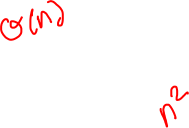 O(n)
n²